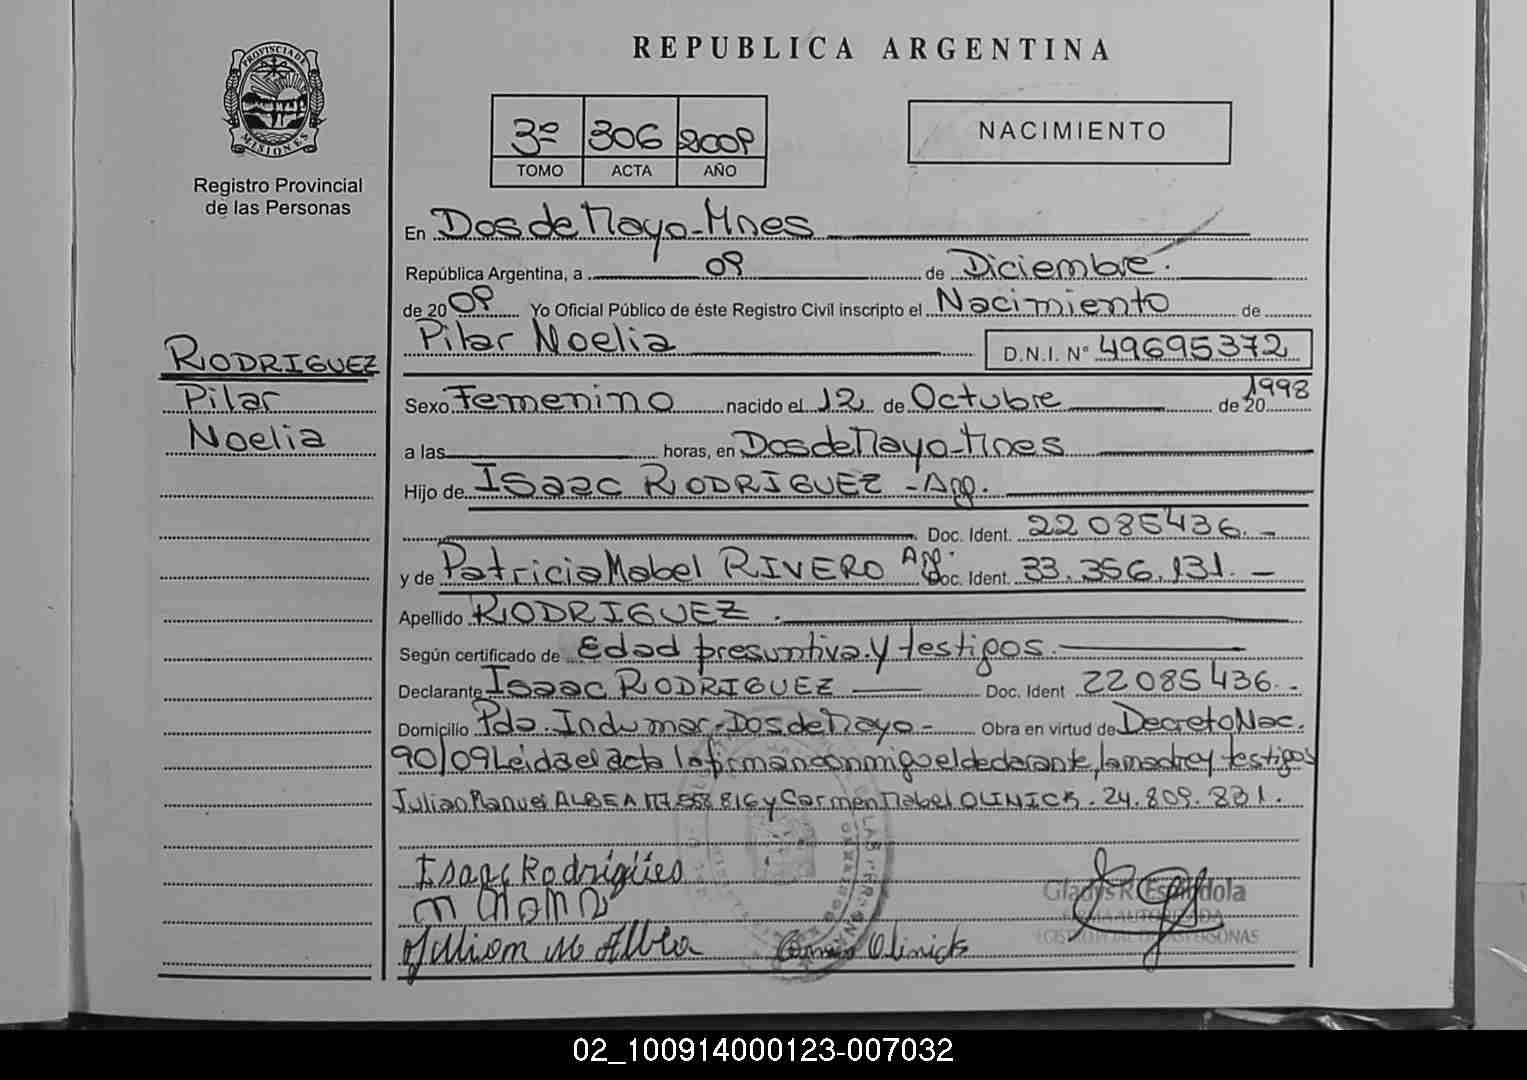 PROVINCIA DE
MISIONES
Registro Provincial
de las Personas
REPUBLICA ARGENTINA
3º 306 2009
TOMO ACTA AÑO
NACIMIENTO
En Dos de Mayo - Mnes
República Argentina, a 09 de Diciembre.
de 20 09 Yo Oficial Público de éste Registro Civil inscripto el Nacimiento de
Pilar Noelia D.N.I. Nº 49695372
RODRIGUEZ
Pilar
Noelia
Sexo Femenino nacido el 12 de Octubre de 20 1998
a las horas, en Dos de Mayo - Mnes
Hijo de Isaac RODRIGUEZ - Arg.
Doc. Ident. 22 085436. -
y de Patricia Mabel RIVERO Arg. Doc. Ident. 33.356.131. -
Apellido RODRIGUEZ.
Según certificado de Edad presuntiva y testigos.
Declarante Isaac RODRIGUEZ Doc. Ident 22085436. -
Domicilio Pda. Indumar - Dos de Mayo - Obra en virtud de Decreto Nac.
90/09 Leida el acta la firman conmigo el declarante, la madre y testigos
Julian Manuel ALBEA 17.558 816 y Carmen Mabel OLINICK. 24.809.831.
Isaac Rodrigües
Gladys R. Espíndola
FIRMA AUTORIZADA
Julian M Albea Carmen Olinick
02_100914000123-007032